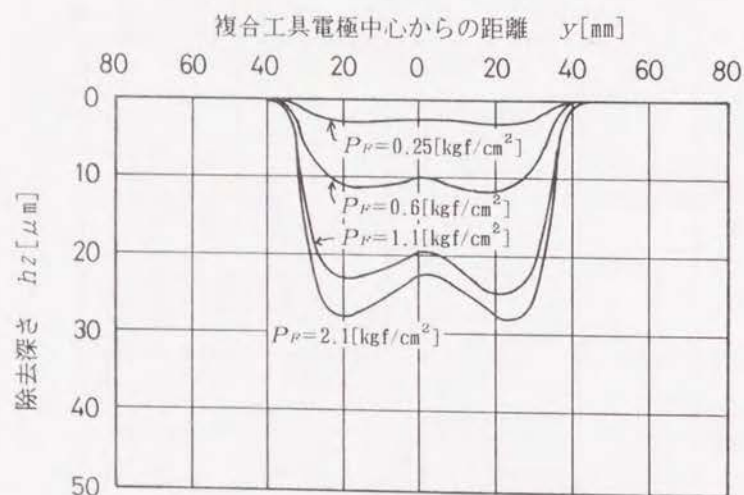 複合工具電極中心からの距離 y[mm]
80 60 40 20 0 20 40 60 80
0
10
20
30
40
50
除去深さ hz[μm]
PF=0.25[kgf/cm²]
PF=0.6[kgf/cm²]
PF=1.1[kgf/cm²]
PF=2.1[kgf/cm²]